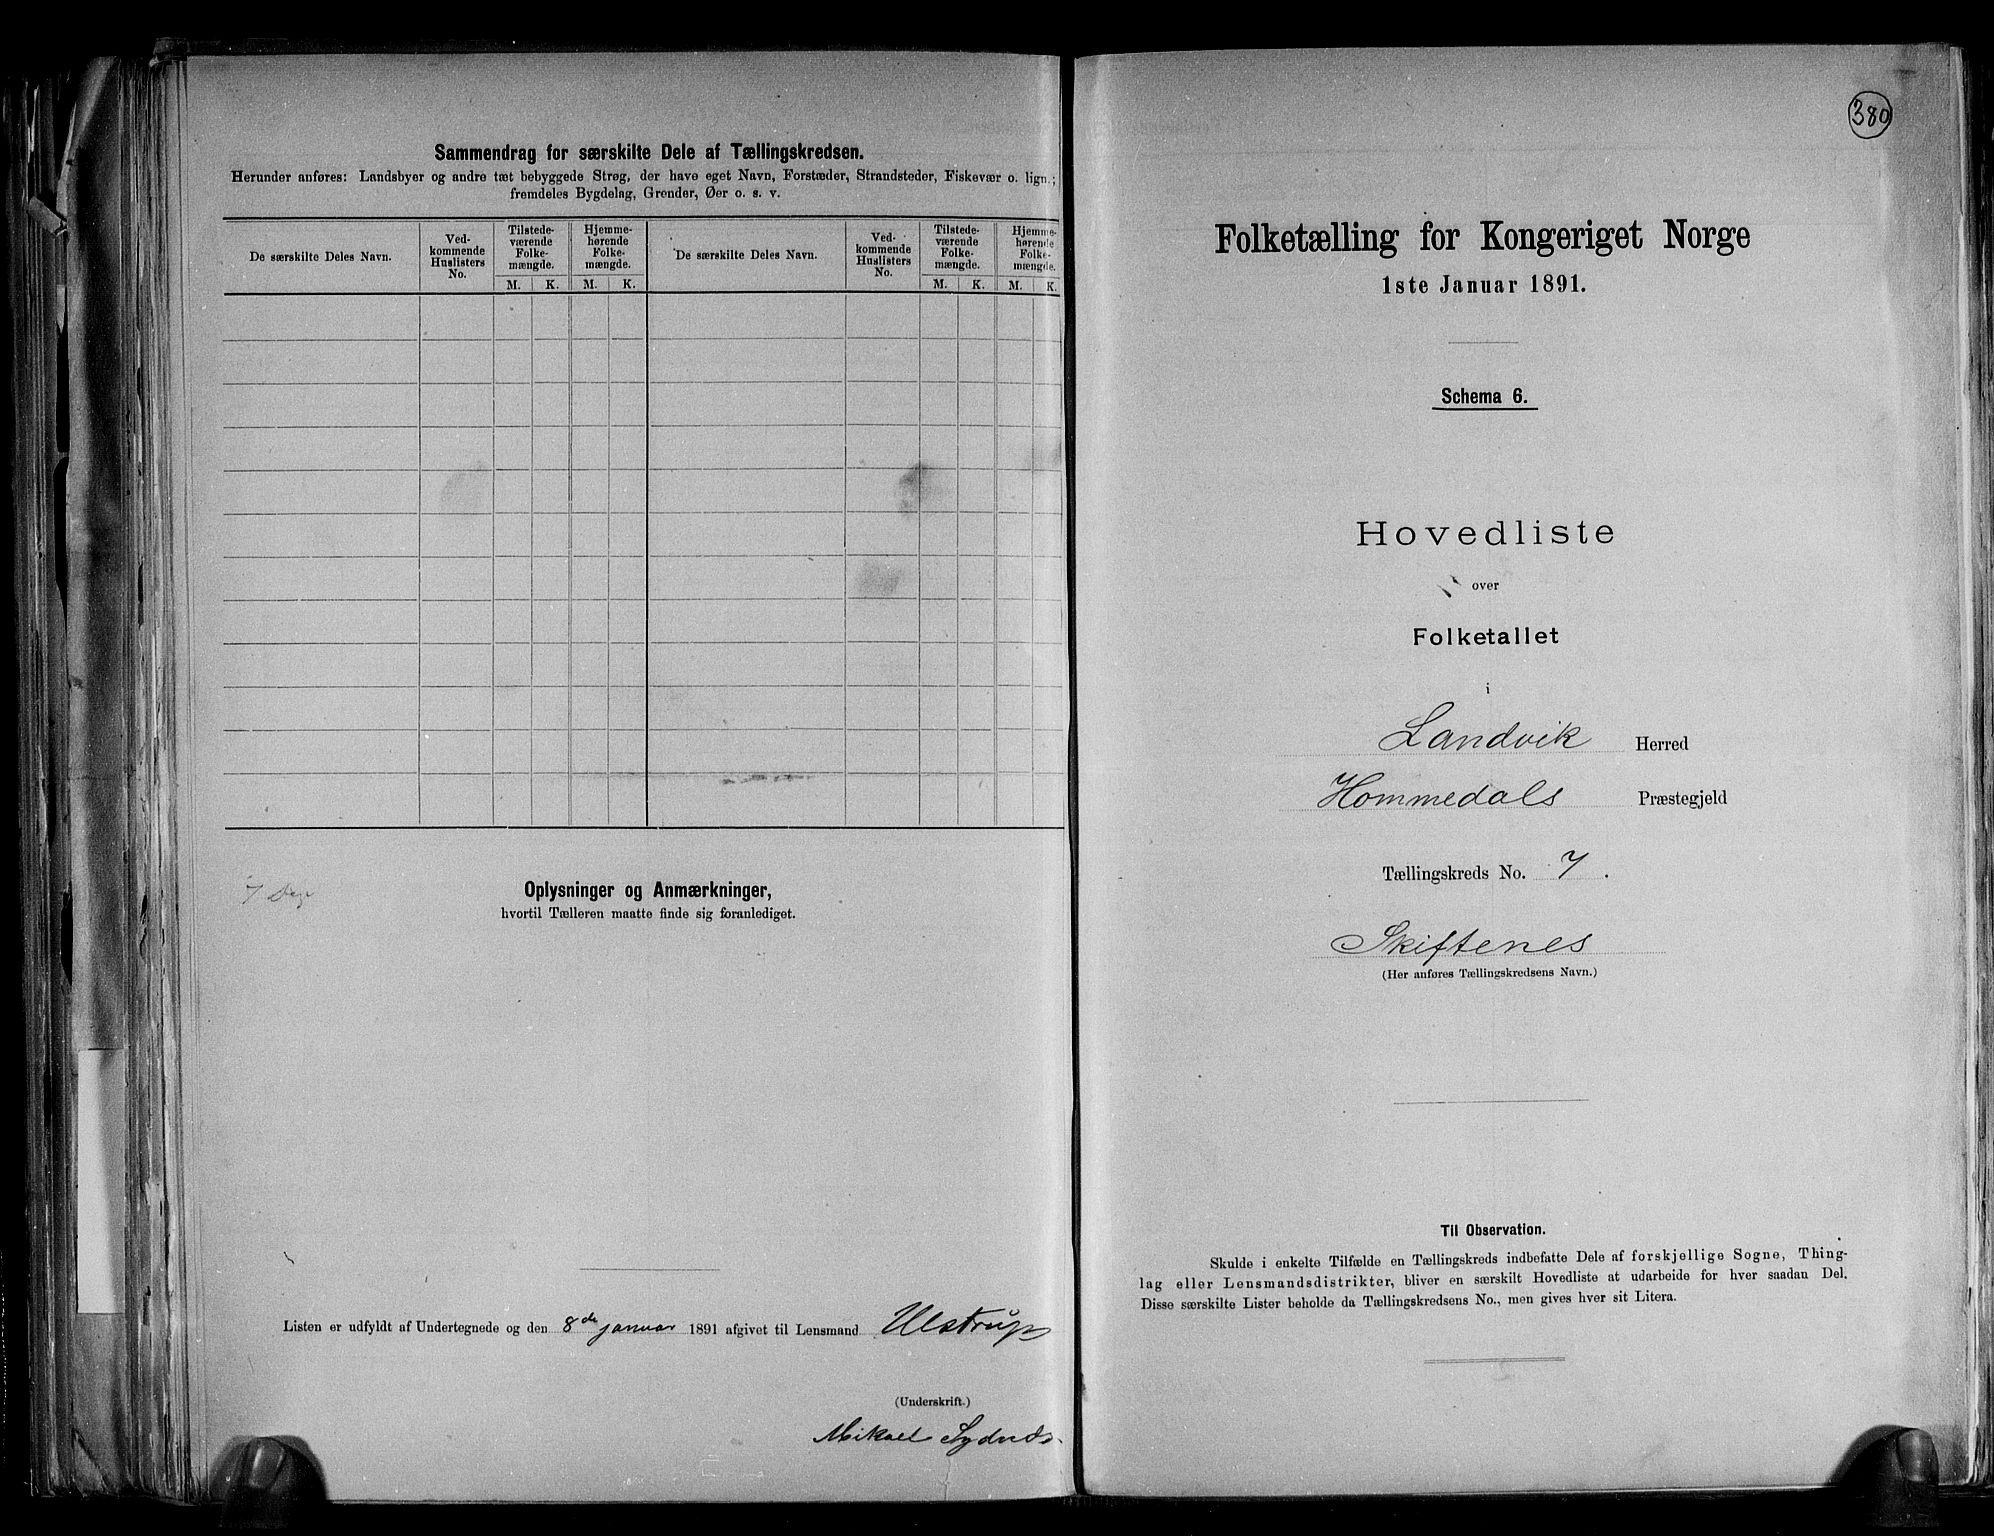 Sammendrag for særskilte Dele af Tællingskredsen.
Herunder anføres: Landsbyer og andre tæt bebyggede Strøg, der have eget Navn, Forstæder, Strandsteder, Fiskevær o. lign.;
fremdeles Bygdelag, Grender, Øer o. s. v.
De særskilte Deles Navn.
Ved-
kommende
Huslisters
No.
Tilstede-
værende
Folke-
mængde.
Hjemme-
hørende
Folke-
mængde.
De særskilte Deles Navn.
Ved-
kommende
Huslisters
No.
Tilstede-
værende
Folke-
mængde.
Hjemme-
hørende
Folke-
mængde.
M. K. M. K. M. K. M. K.
7
Oplysninger og Anmærkninger,
hvortil Tælleren maatte finde sig foranlediget.
Listen er udfyldt af Undertegnede og den 8de januar 1891 afgivet til Lensmand Ulstrup
(Underskrift.)
Mikael
380
Folketælling for Kongeriget Norge
1ste Januar 1891.
Schema 6.
Hovedliste
over
Folketallet
i
Landvik Herred
Hommedals Præstegjeld
Tællingskreds No. 7.
Skiftenes
(Her anføres Tællingskredsens Navn.)
Til Observation.
Skulde i enkelte Tilfælde en Tællingskreds indbefatte Dele af forskjellige Sogne, Thing-
lag eller Lensmandsdistrikter, bliver en særskilt Hovedliste at udarbeide for hver saadan Del.
Disse særskilte Lister beholde da Tællingskredsens No., men gives hver sit Litera.